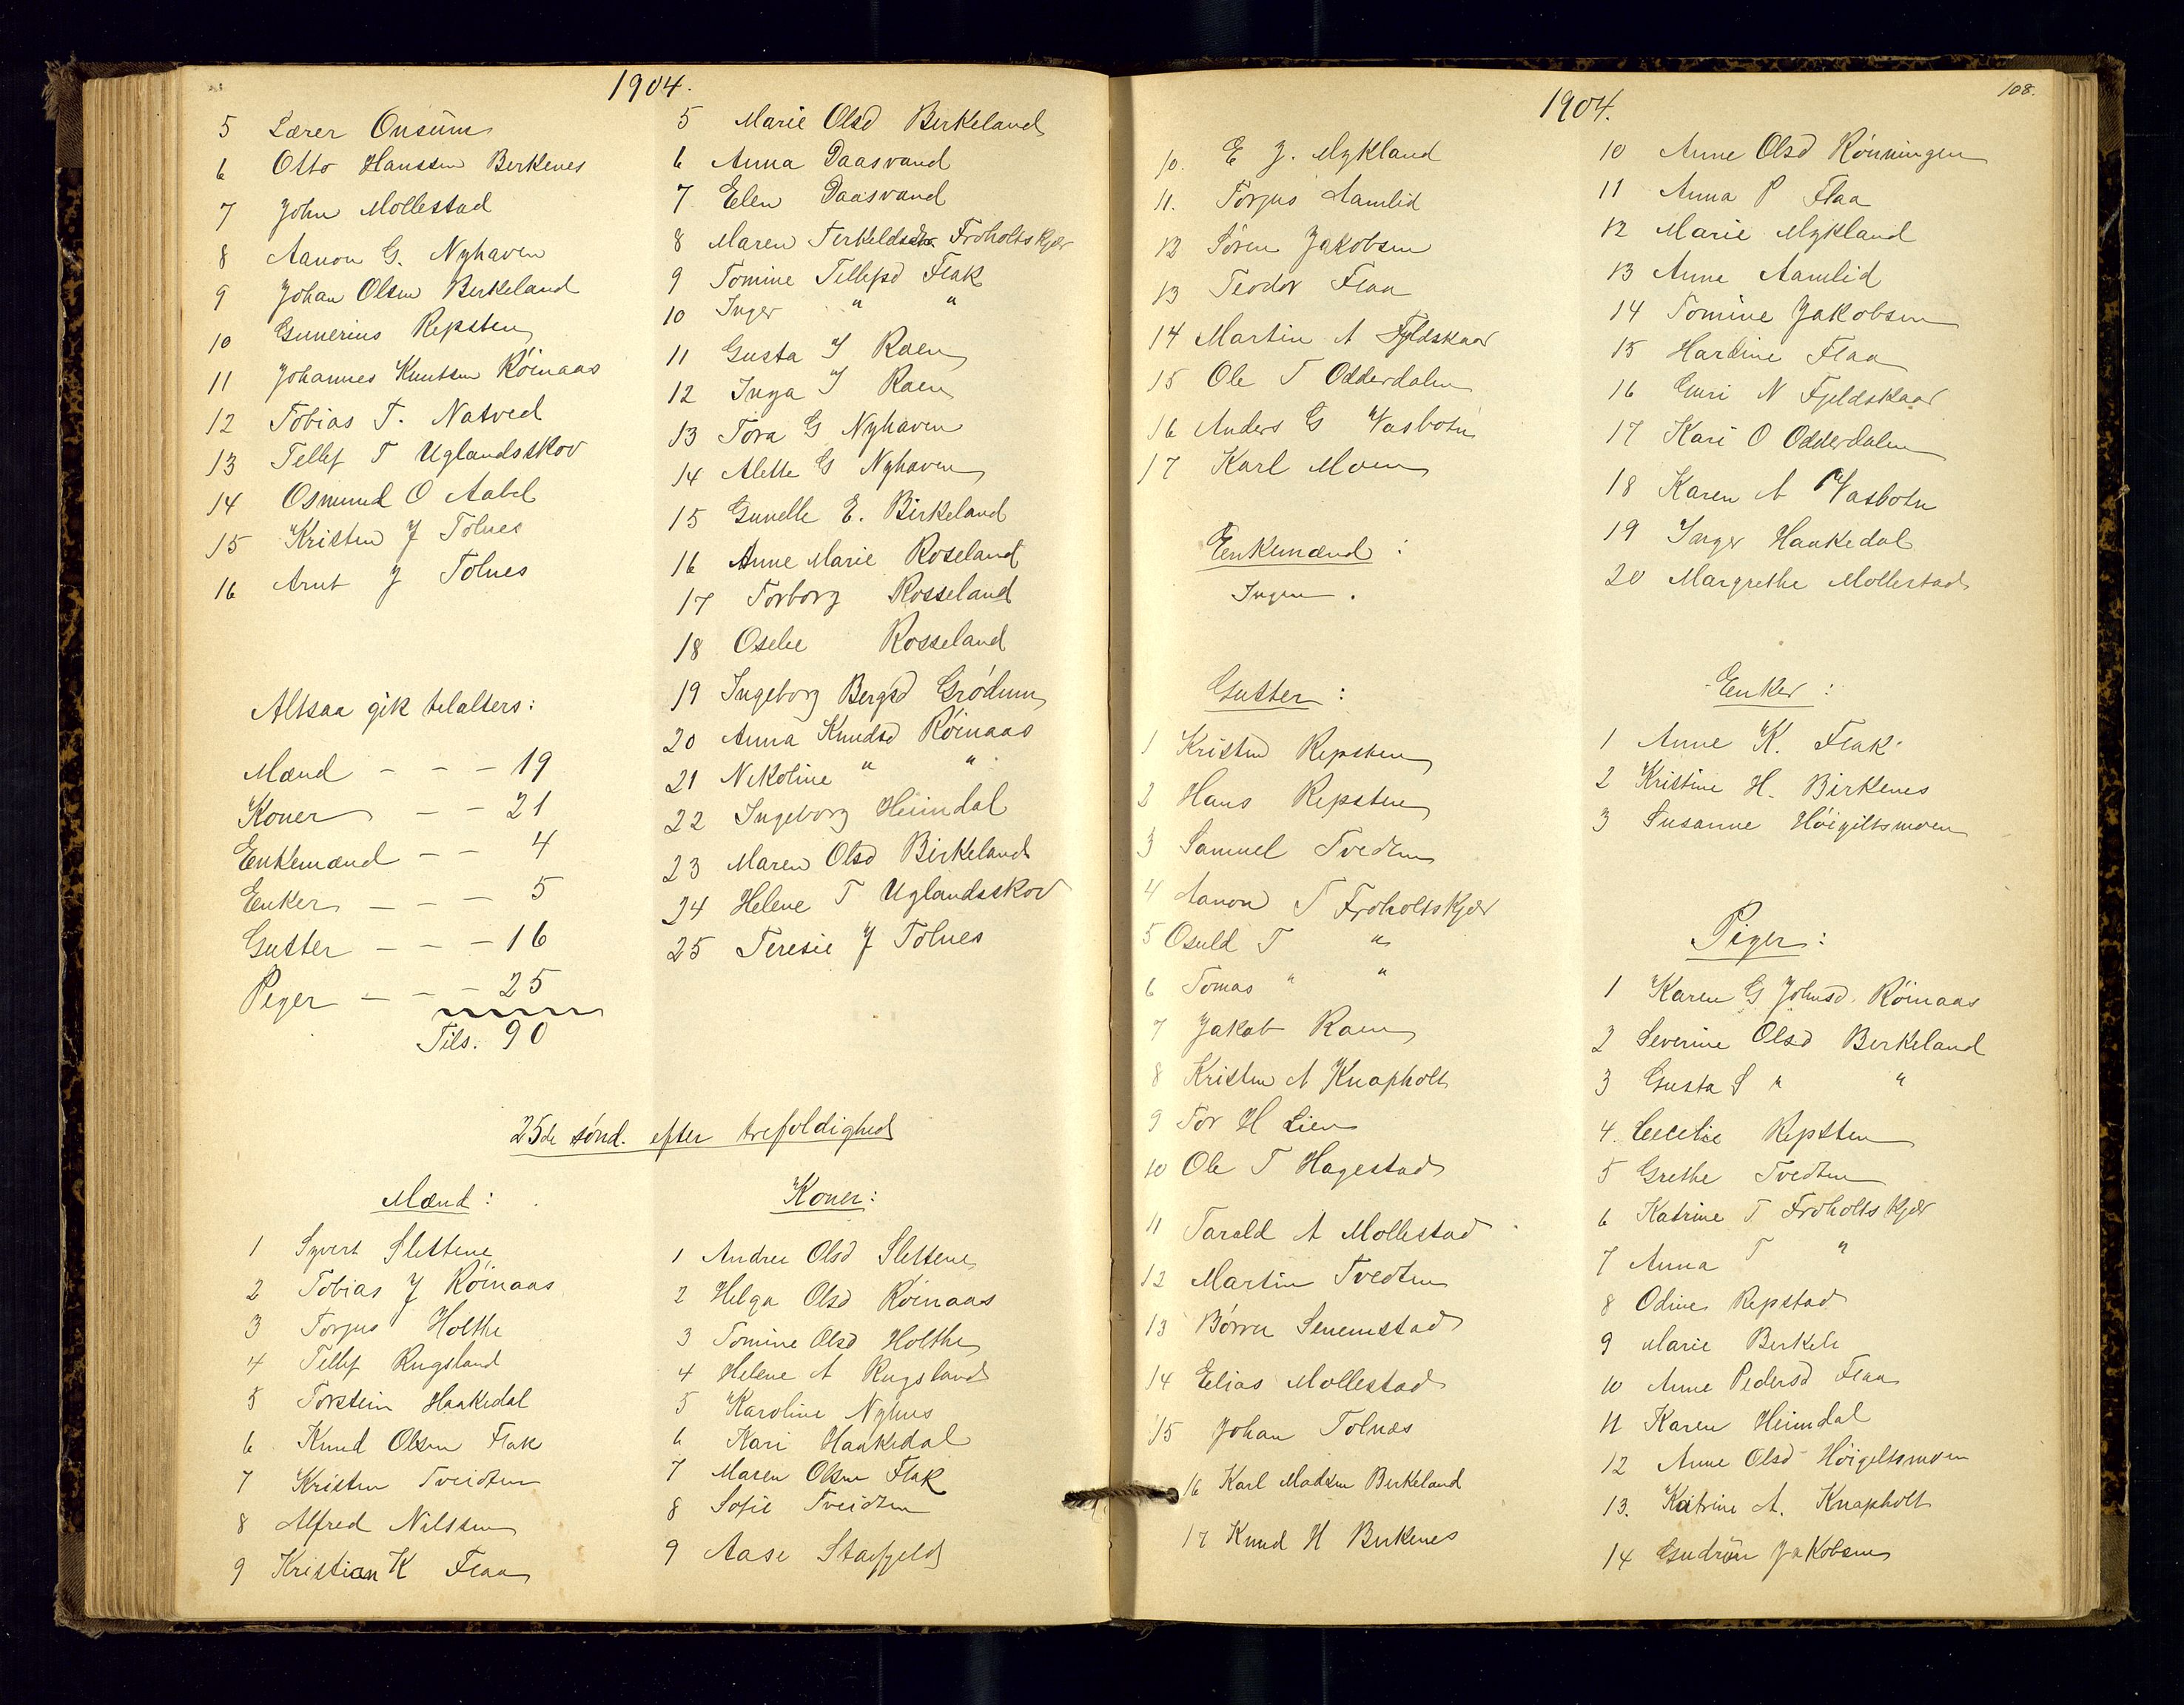 1904.
5 Lærer Onsüm
6 Otto Hanssen Berkenes
7 John Mollestad
8 Aanon G. Nyhaven
9 Johan Olsen Berkeland
10 Gunerius Repsten
11 Johannes Knutsen Röinaas
12 Tobias T. Natved
13 Tellef T Uglandsskov
14 Osmund O Aabel
15 Kristen J Tolnes
16 Arnt J Tolnes
Altsaa gik tilalters:
Mænd - - - 19
Koner - - 21
Enkemænd - - 4
Enker - - - 5
Gutter - - - 16
Piger - - - 25
Tils. 90
5 Marie Olsd Berkeland
6 Anna Daasvand
7 Elen Daasvand
8 Maren Terkeldsd Froholtskjær
9 Tomine Tellefsd Flak
10 Inger " "
11 Gusta J Raen
12 Inga J Raen
13 Tora G Nyhaven
14 Alette G Nyhaven
15 Gunelle E. Birkeland
16 Anne Marie Roseland
17 Torborg Rosseland
18 Oselie Rosseland
19 Ingeborg Bergsd Grödum
20 Anna Knudsd Röinaas
21 Nikoline " "
22 Ingeborg Heimdal
23 Maren Olsd Birkeland
24 Helene T Uglandsskov
25 Teresie J Tolnes
25de sönd. efter trefoldighed
Mænd:
1 Syvert Slettene
2 Tobias J Röinaas
3 Torjus Holthe
4 Tellef Rugsland
5 Torstein Haakedal
6 Knud Olsen Flak
7 Kristen Tveidten
8 Alfred Nilssen
9 Kristian K Flaa
Koner:
1 Andrea Olsd Slettene
2 Helga Olsd Röinaas
3 Tomine Olsd Holthe
4 Helene A Rugsland
5 Karoline Nyhus
6 Kari Haakedal
7 Maren Olsen Flak
8 Sofie Tveidten
9 Aase Stasfjeld
108.
1904.
10. E J. Mykland
11. Torjus Aamlid
12 Sören Jakobsen
13 Teodor Flaa
14 Martin A Fjeldskaar
15 Ole T Odderdalen
16 Anders G Vasbotn
17 Karl Moen
Enkemænd:
Ingen.
Gutter:
1 Kristen Repsten
2 Hans Repsten
3 Samuel Tvedten
4 Aanon T Froholtskjær
5 Osuld T "
6 Tomas " "
7 Jakob Raen
8 Kristen A Knapholt
9 Tor H Lien
10 Ole T Hagestad
11 Tarald A Mollestad
12 Martin Tvedten
13 Börre Senumstad
14 Elias Mollestad
15 Johan Tolnæs
16 Karl Madsen Birkeland
17 Knud H Birkenes
10 Anne Olsd Rönningen
11 Anna P Flaa
12 Marie Mykland
13 Anne Aamlid
14 Tomine Jakobsen
15 Hardine Flaa
16 Guri N Fjeldskaar
17 Kari O Odderdalen
18 Karen A Vasbotn
19 Inger Haakedal
20 Margrethe Mollestad
Enker:
1 Anne K. Flak
2 Kristine H. Birkenes
3 Susanne Höigiltsmoen
Piger:
1 Karen G Johnsd. Röinaas
2 Severine Olsd Berkeland
3 Gusta S " "
4. Cecelie Repsten
5 Grethe Tvedten
6 Katrine T Froholtskjær
7 Anna T "
8 Odine Repstad
9 Marie Berkele
10 Anne Pedersd Flaa
11 Karen Heimdal
12 Anne Olsd Höigeltsmoen
13. Katrine A. Knapholt
14 Gudrün Jakobsen